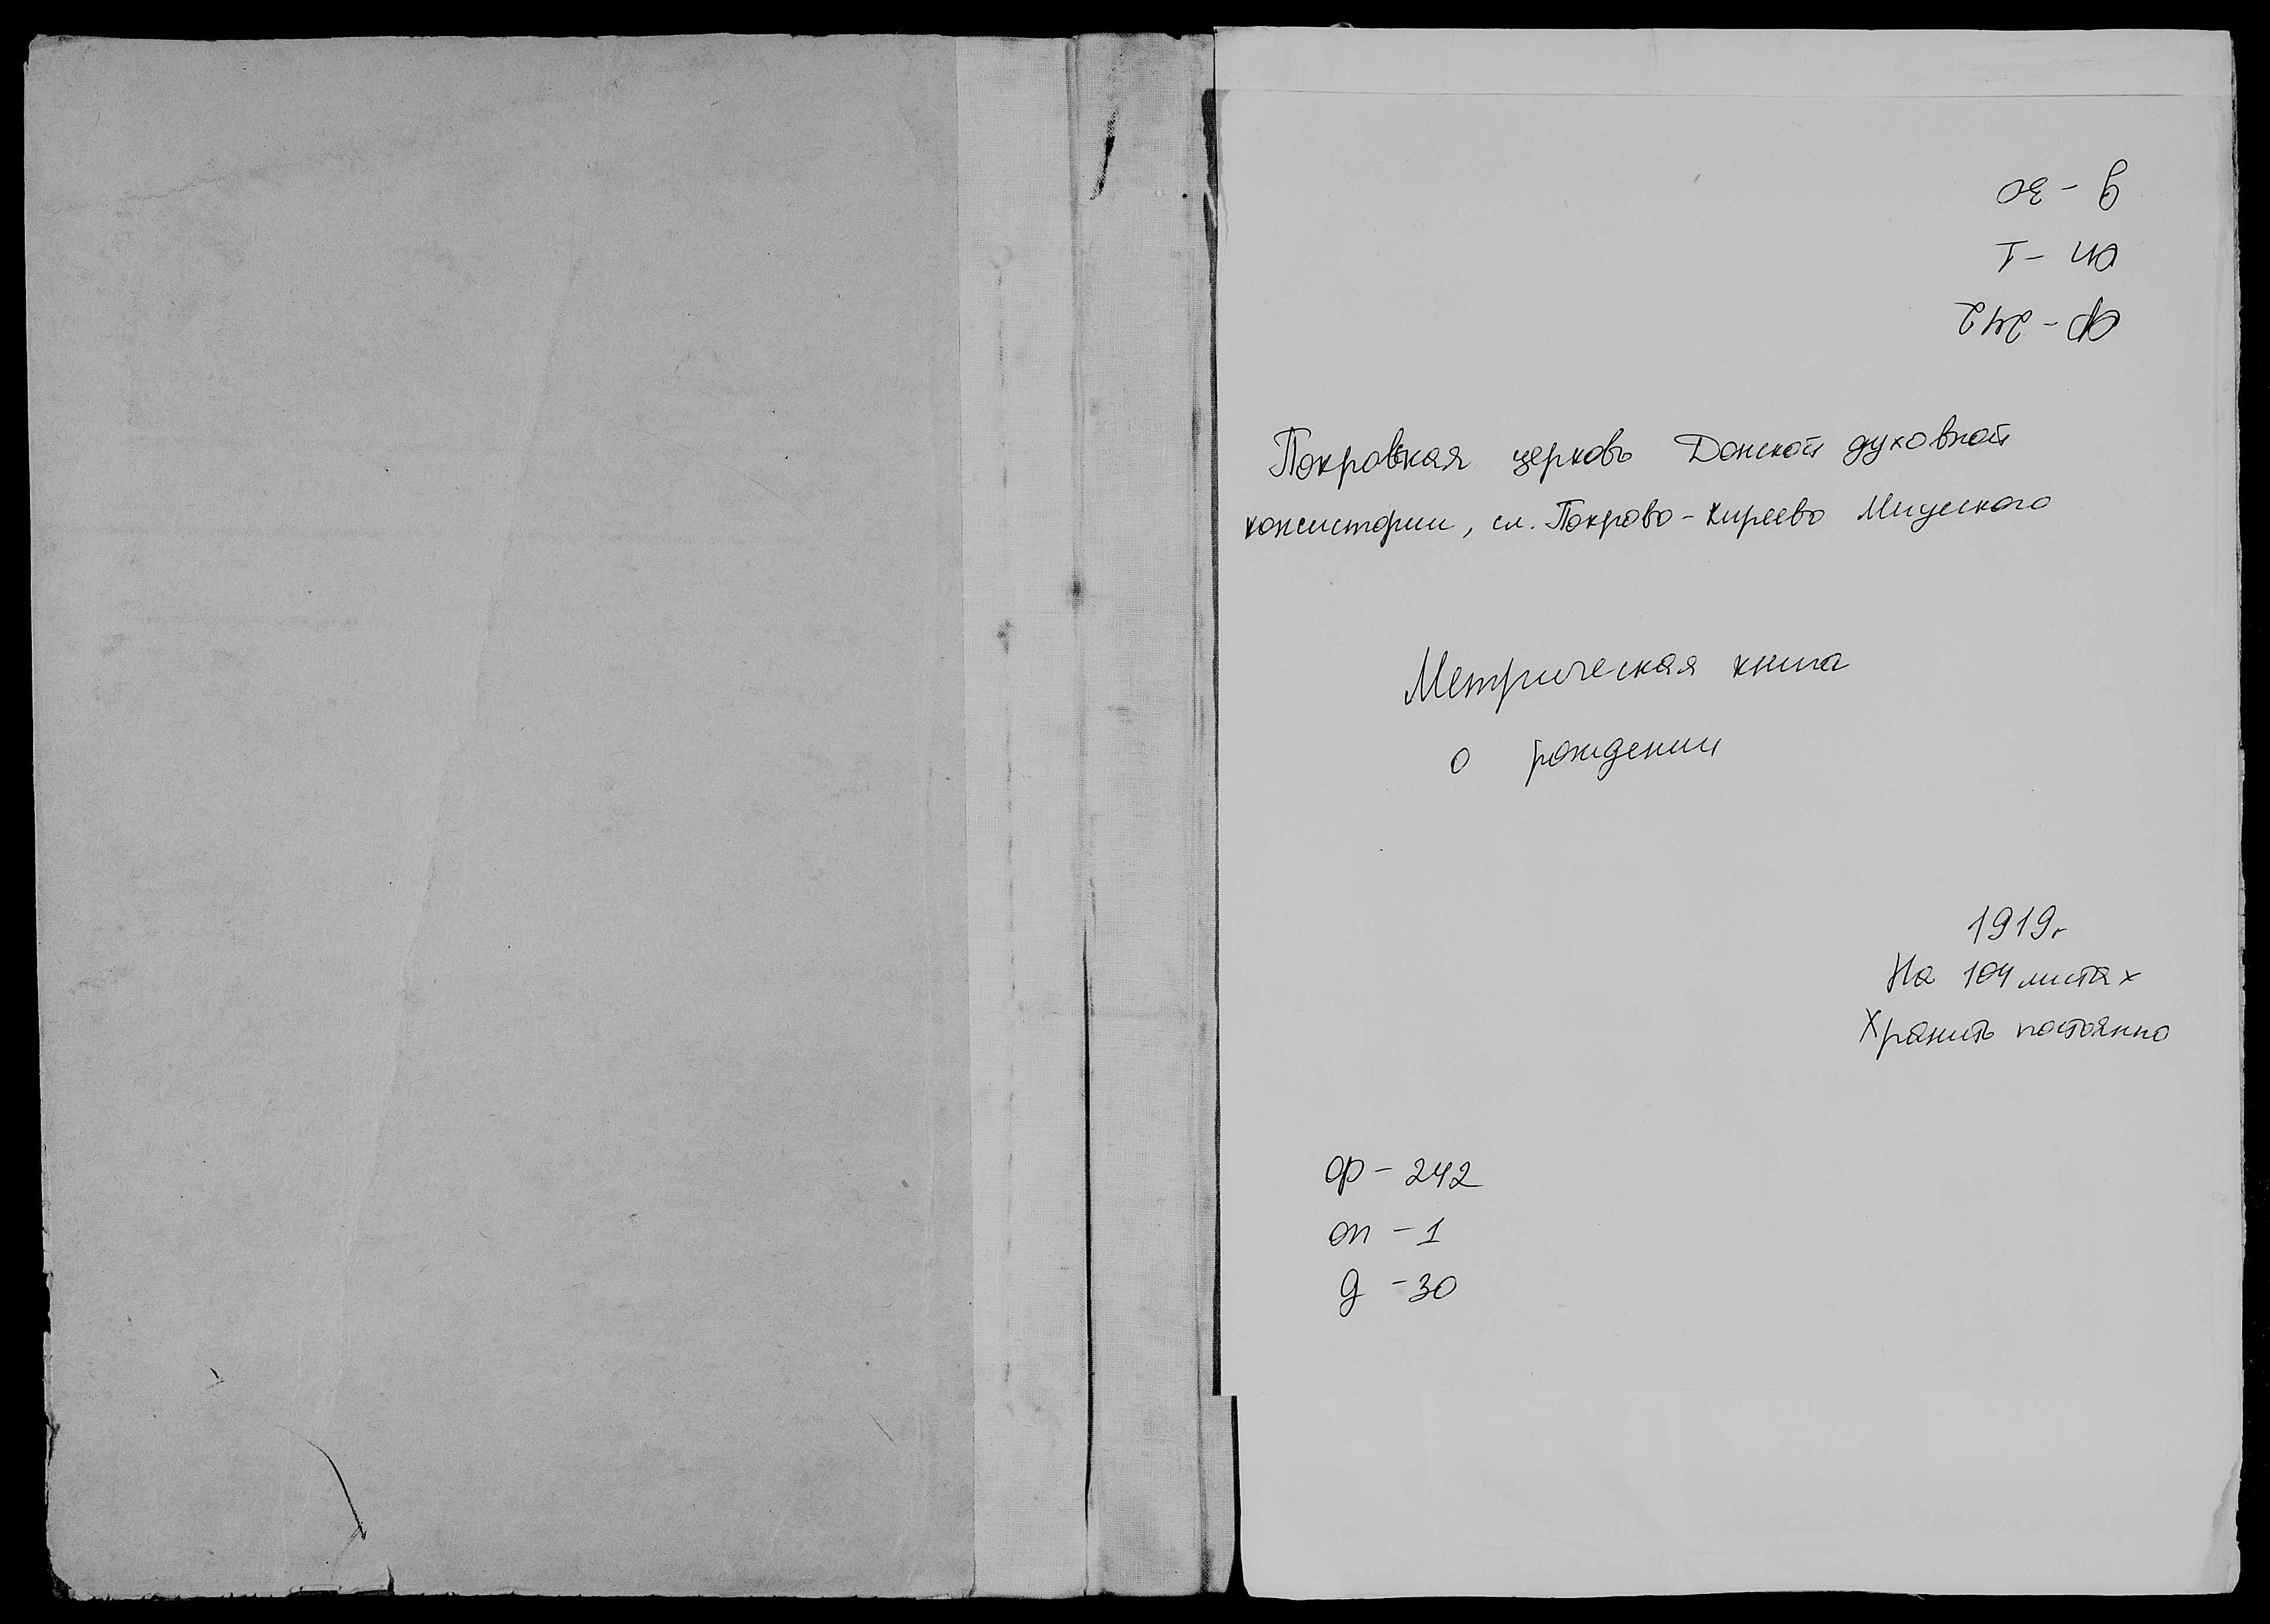 ф - 242
оп - 1
д - 30
Покровская церковь Донской духовной
консистории, сл. Покрово-Киреево Миусского
Метрическая книга
о рождении
1919г
На 104 листах
Хранить постоянно
ф - 242
оп - 1
д - 30